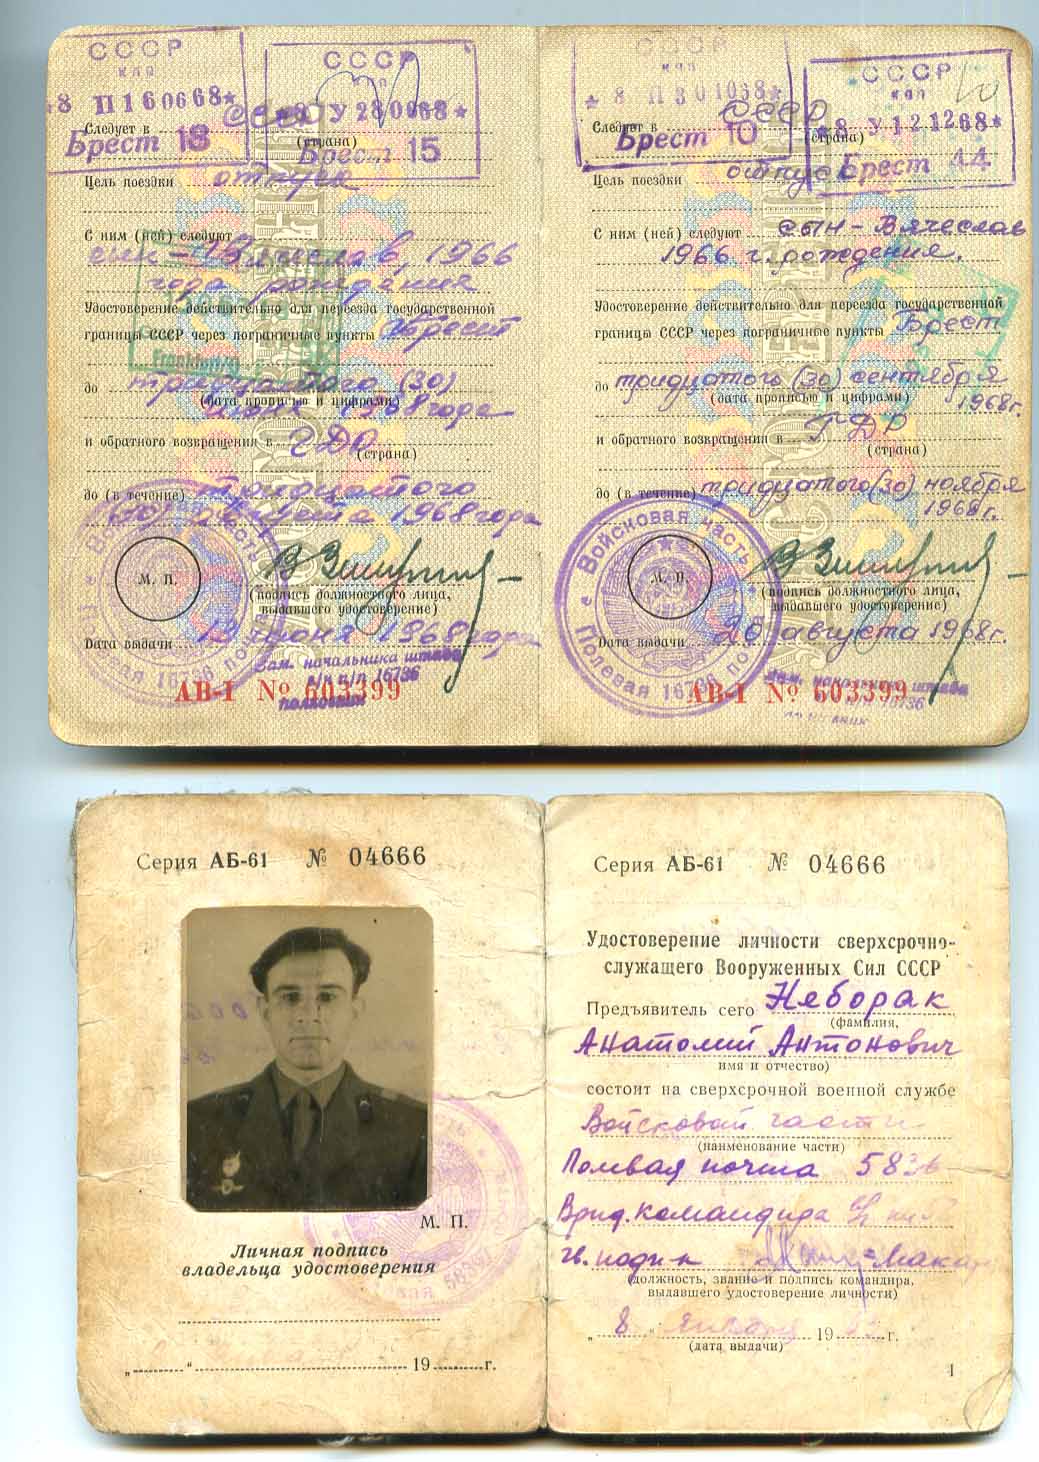 СССР
КПП
8 П 160668
Брест 18
СССР
КПП
У 280968
Брест 15
Следует в СССР
(страна)
Цель поездки отпуск
С ним (ней) следуют
сын - Вячеслав, 1966
года рождения
Удостоверение действительно для переезда государственной
границы СССР через пограничные пункты Брест
Frankfurt/O
до тридцатого (30)
(дата прописью и цифрами)
июня 1968 года
и обратного возвращения в ГДР
(страна)
до (в течение) тридцатого
(30) августа 1968 года
Войсковая часть
Полевая почта 16736
М. П.
(подпись должностного лица,
выдавшего удостоверение)
Дата выдачи 13 июня 1968 года
Зам. начальника штаба
в/ч п/п 16736
полковник
АВ-I № 603399
СССР
КПП
8 П 301068
Брест 10
СССР
КПП
8 У 121268
Брест 44
Следует в СССР
(страна)
Цель поездки отпуск
С ним (ней) следуют сын - Вячеслав
1966 г. рождения.
Удостоверение действительно для переезда государственной
границы СССР через пограничные пункты Брест
до тридцатого (30) сентября
(дата прописью и цифрами)
1968г.
и обратного возвращения в ГДР
(страна)
до (в течение) тридцатого (30) ноября
1968г.
Войсковая часть
Полевая почта 16736
М. П.
(подпись должностного лица,
выдавшего удостоверение)
Дата выдачи 26 августа 1968г.
Зам. начальника штаба
16736
АВ-I № 603399
Серия АБ-61 № 04666
М. П.
Личная подпись
владельца удостоверения
„ “ 19 г.
Серия АБ-61 № 04666
Удостоверение личности сверхсрочно-
служащего Вооруженных Сил СССР
Предъявитель сего Неборак
(фамилия,
Анатолий Антонович
имя и отчество)
состоит на сверхсрочной военной службе
Войсковой части
(наименование части)
Полевая почта
Врид. командира
гв. подп-к
(должность, звание и подпись командира,
выдавшего удостоверение личности)
„ 8 “ января 19 г.
(дата выдачи)
1